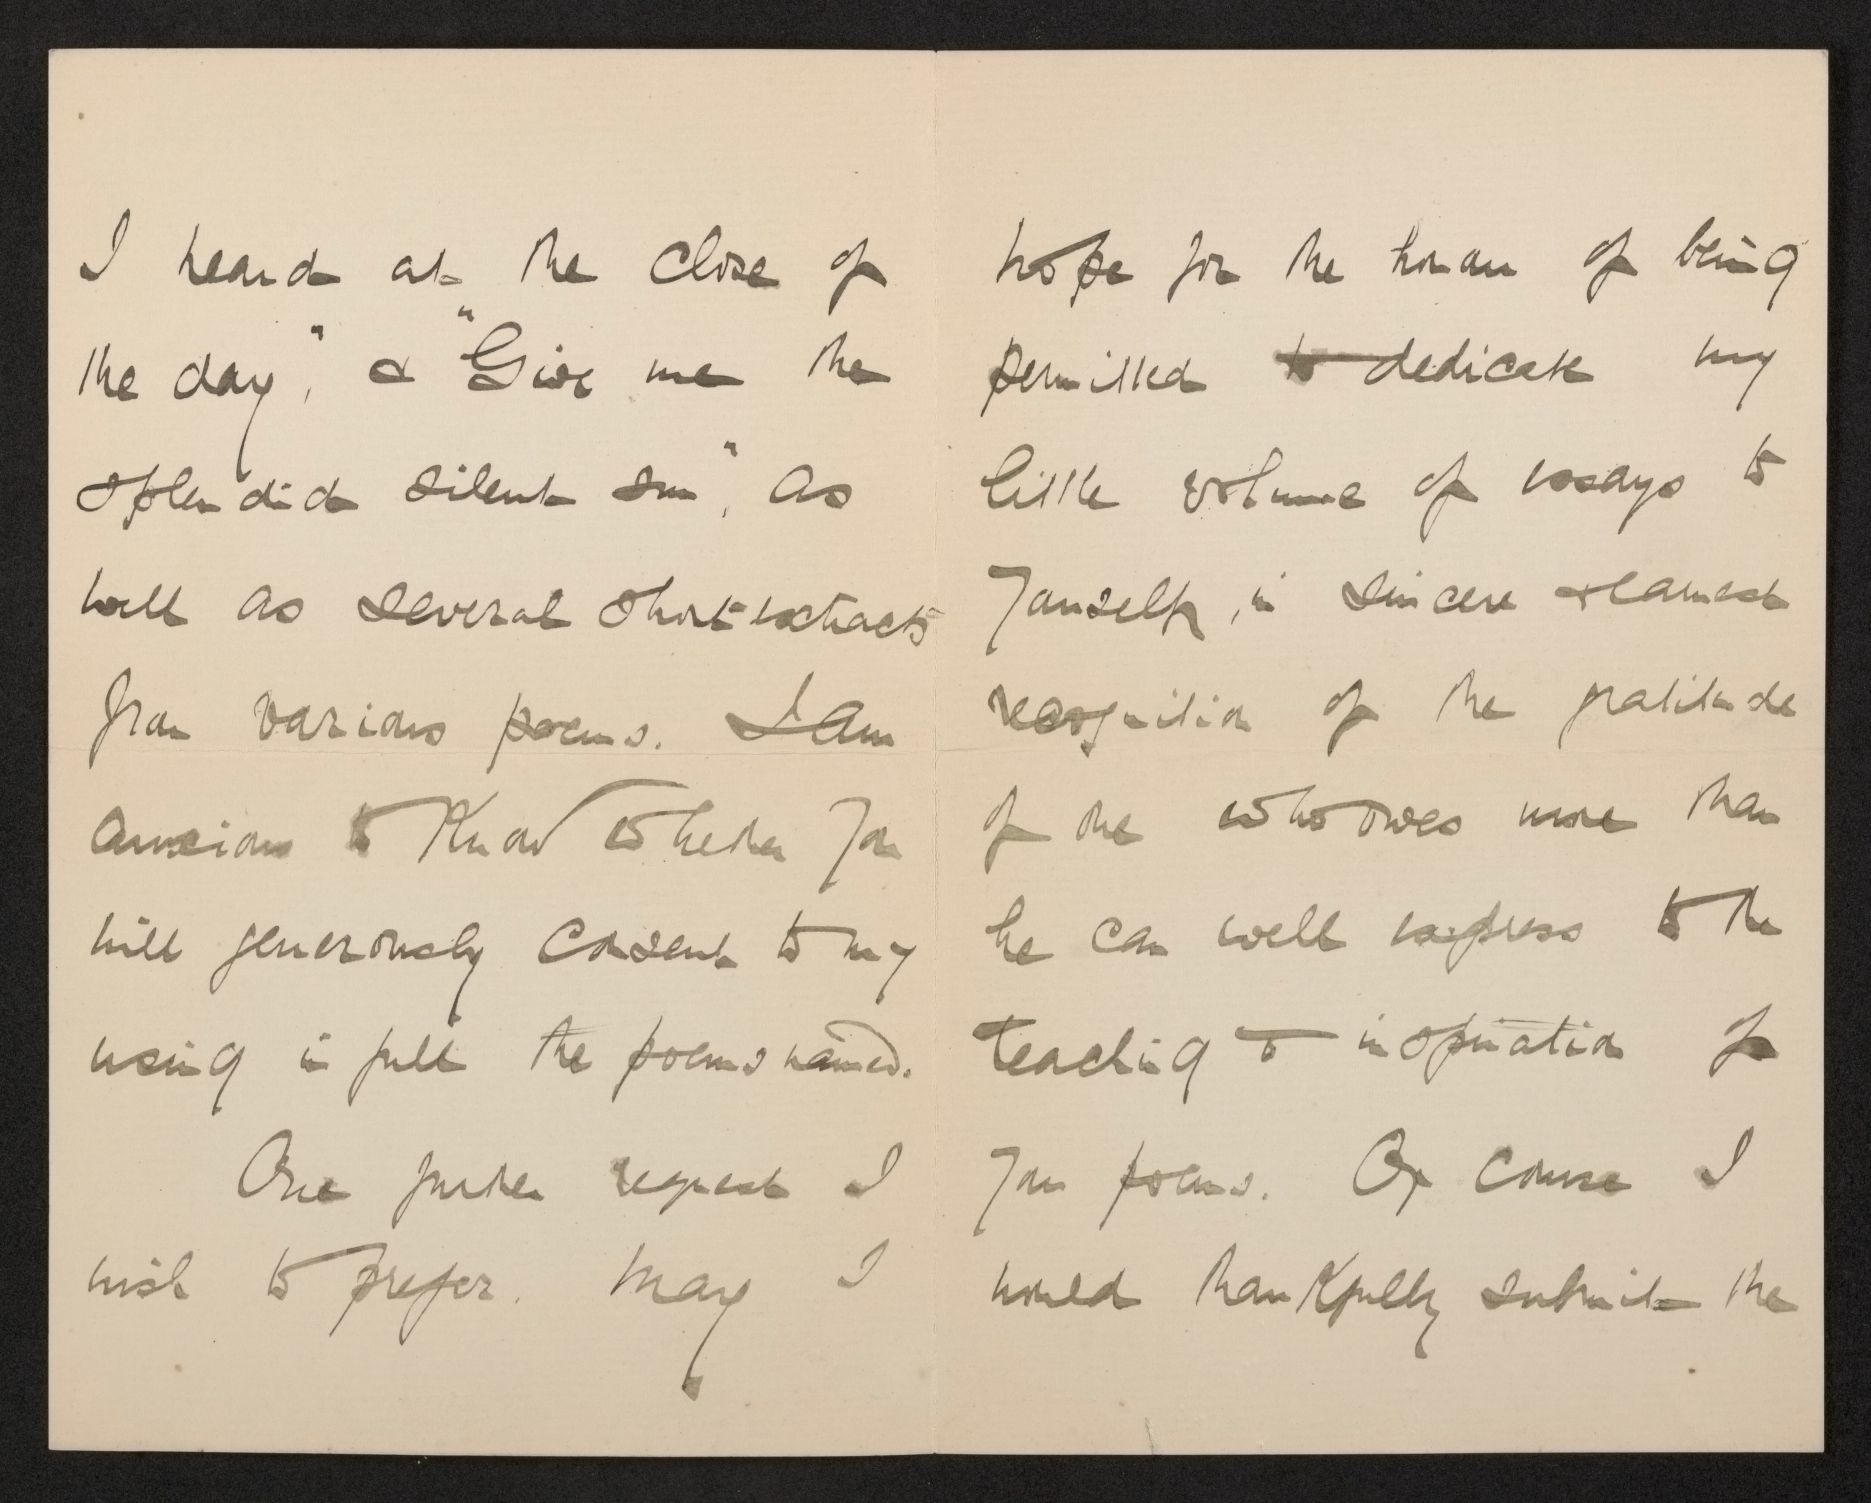 I heard at the close of
the day", & "Give me the
splendid silent sun", as
well as several short extracts
from various poems. I am
anxious to know whether you
will generously consent to my
using in full the poems named.
One further request I
wish to prefer. May I
hope for the honour of being
permitted to dedicate my
little volume of essays to
yourself, in sincere & earnest
recognition of the gratitude
of one who owes more than
he can well express to the
teaching & inspiration of
your poems. Of course I
would thankfully submit the